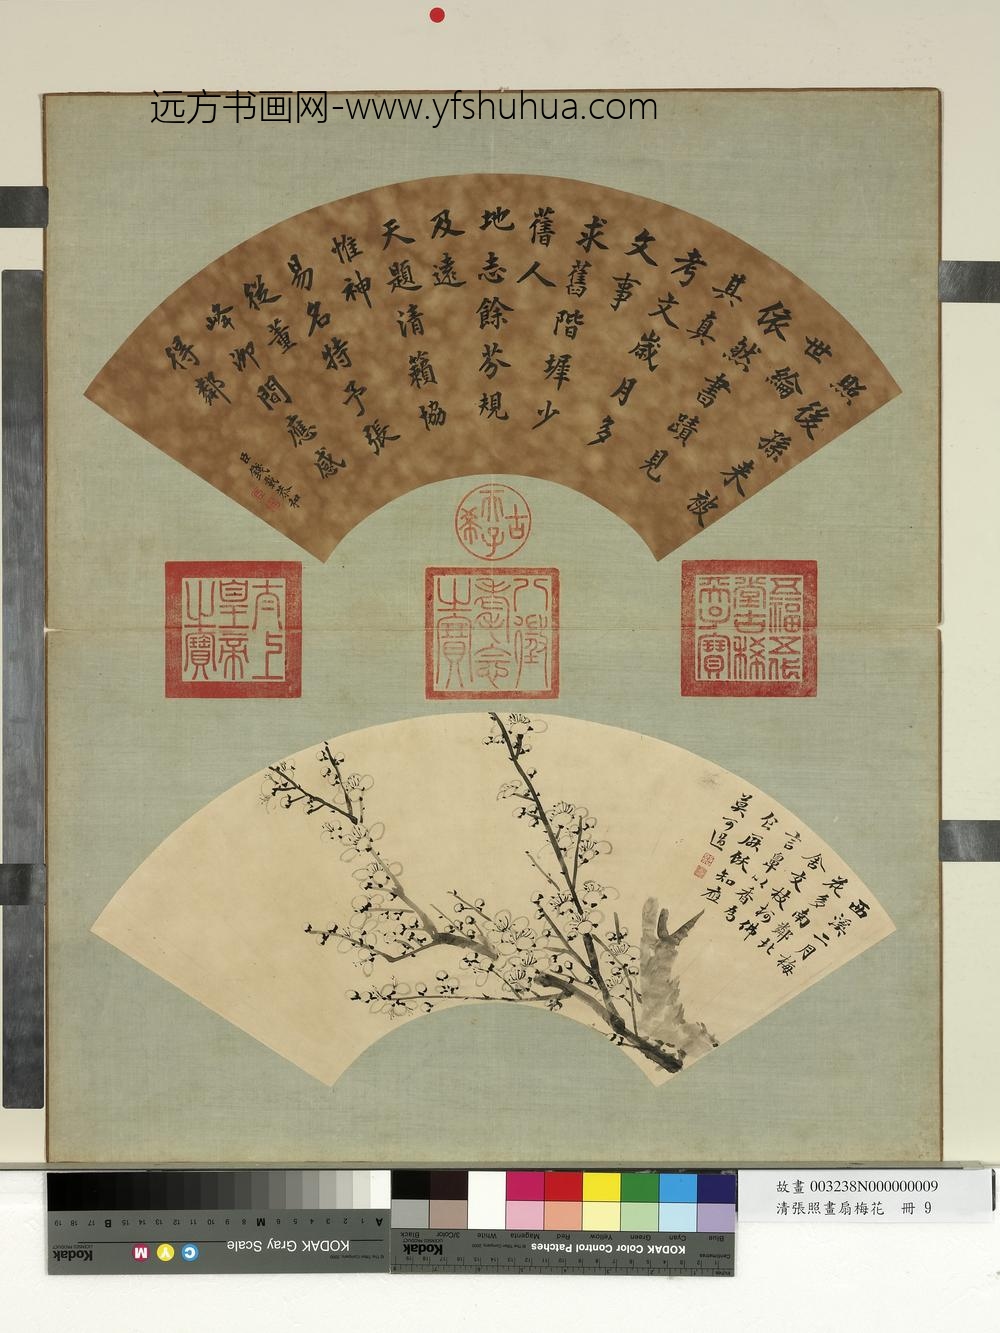 远方书画网-www.yfshuhua.com
照後孫来被
世綸
依然書蹟見
其真
考文歲月多
文事
求舊階墀少
舊人
地志餘芬規
及遠
天題清籟協
惟神
易名特予張
從董
峰泖間應感
得鄰
臣錢載恭和
古希天子
五福五代堂古稀天子寶
八徵耄念之寶
太上皇帝之寶
西溪二月梅
花多南鄰北
舍交枝柯佛
言皐以香為
公厥飫知應
莫可過
故畫 003238N000000009
清張照畫扇梅花 冊 9
KODAK Gray Scale
Kodak
C Y M
A 1 2 3 4 5 6 M 8 9 10 11 12 13 14 15 B 17 18 19
KODAK Color Control Patches
Kodak
Blue Cyan Green Yellow Red Magenta White 3/Color Black